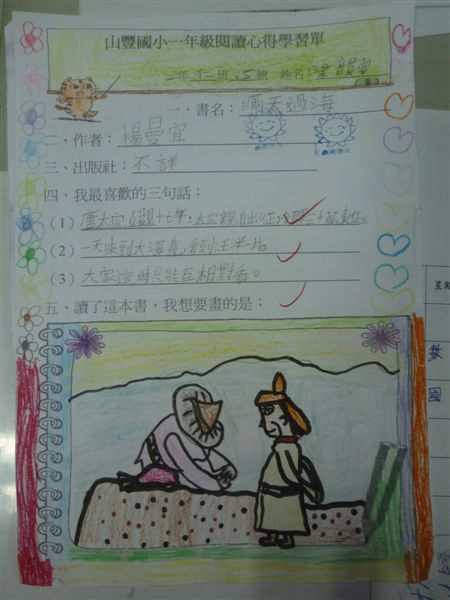 山豐國小一年級閱讀心得學習單
一年 仁 班 15 號 姓名：梁
一、書名：瞞天過海
二、作者：楊曼宜
三、出版社：不詳
四、我最喜歡的三句話：
(1) 唐太宗貞觀十七年，太宗親自出征，三十萬東征。
(2) 一天來到大海邊，看到汪洋一片。
(3) 大家這時只能互相對看。
五、讀了這本書，我想要畫的是：
星期
數
國